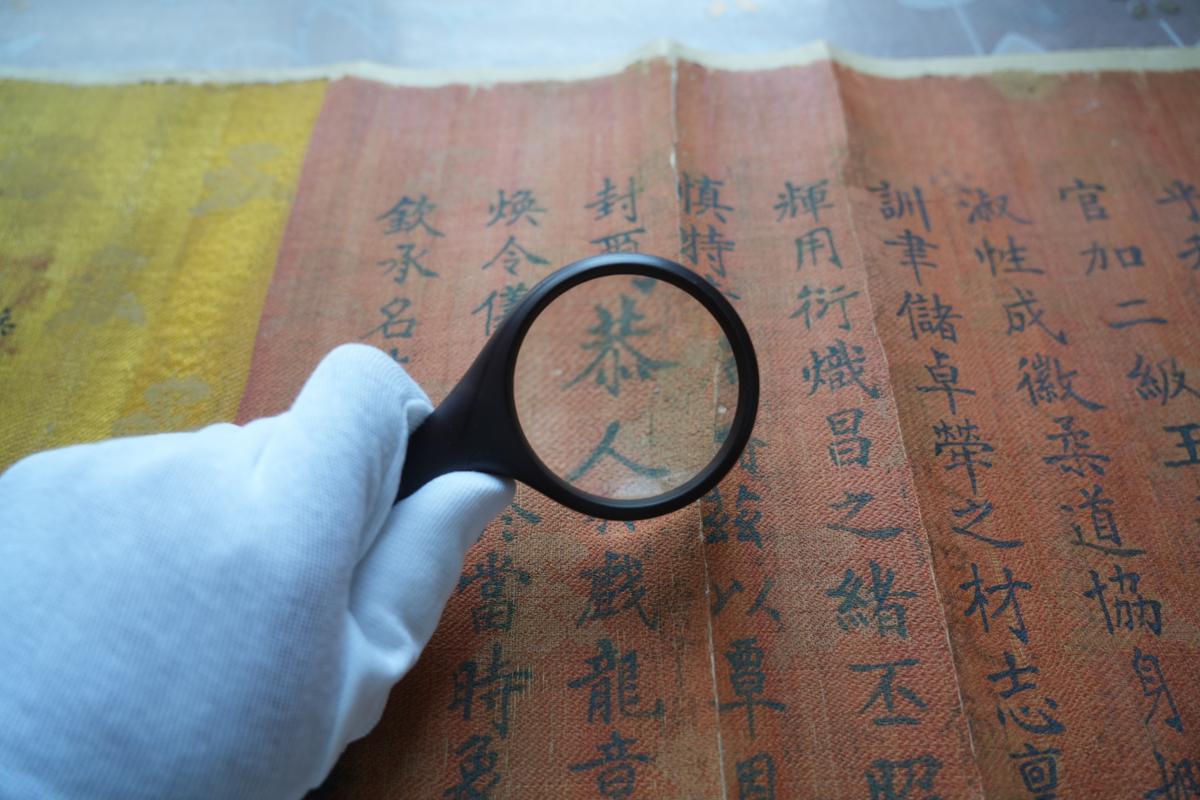 官加二級王
淑性成徽柔道協身
訓聿儲卓犖之材志亶
輝用衍熾昌之緒丕昭
慎特以覃
封恭人戲龍音
煥令儀當時
欽承名